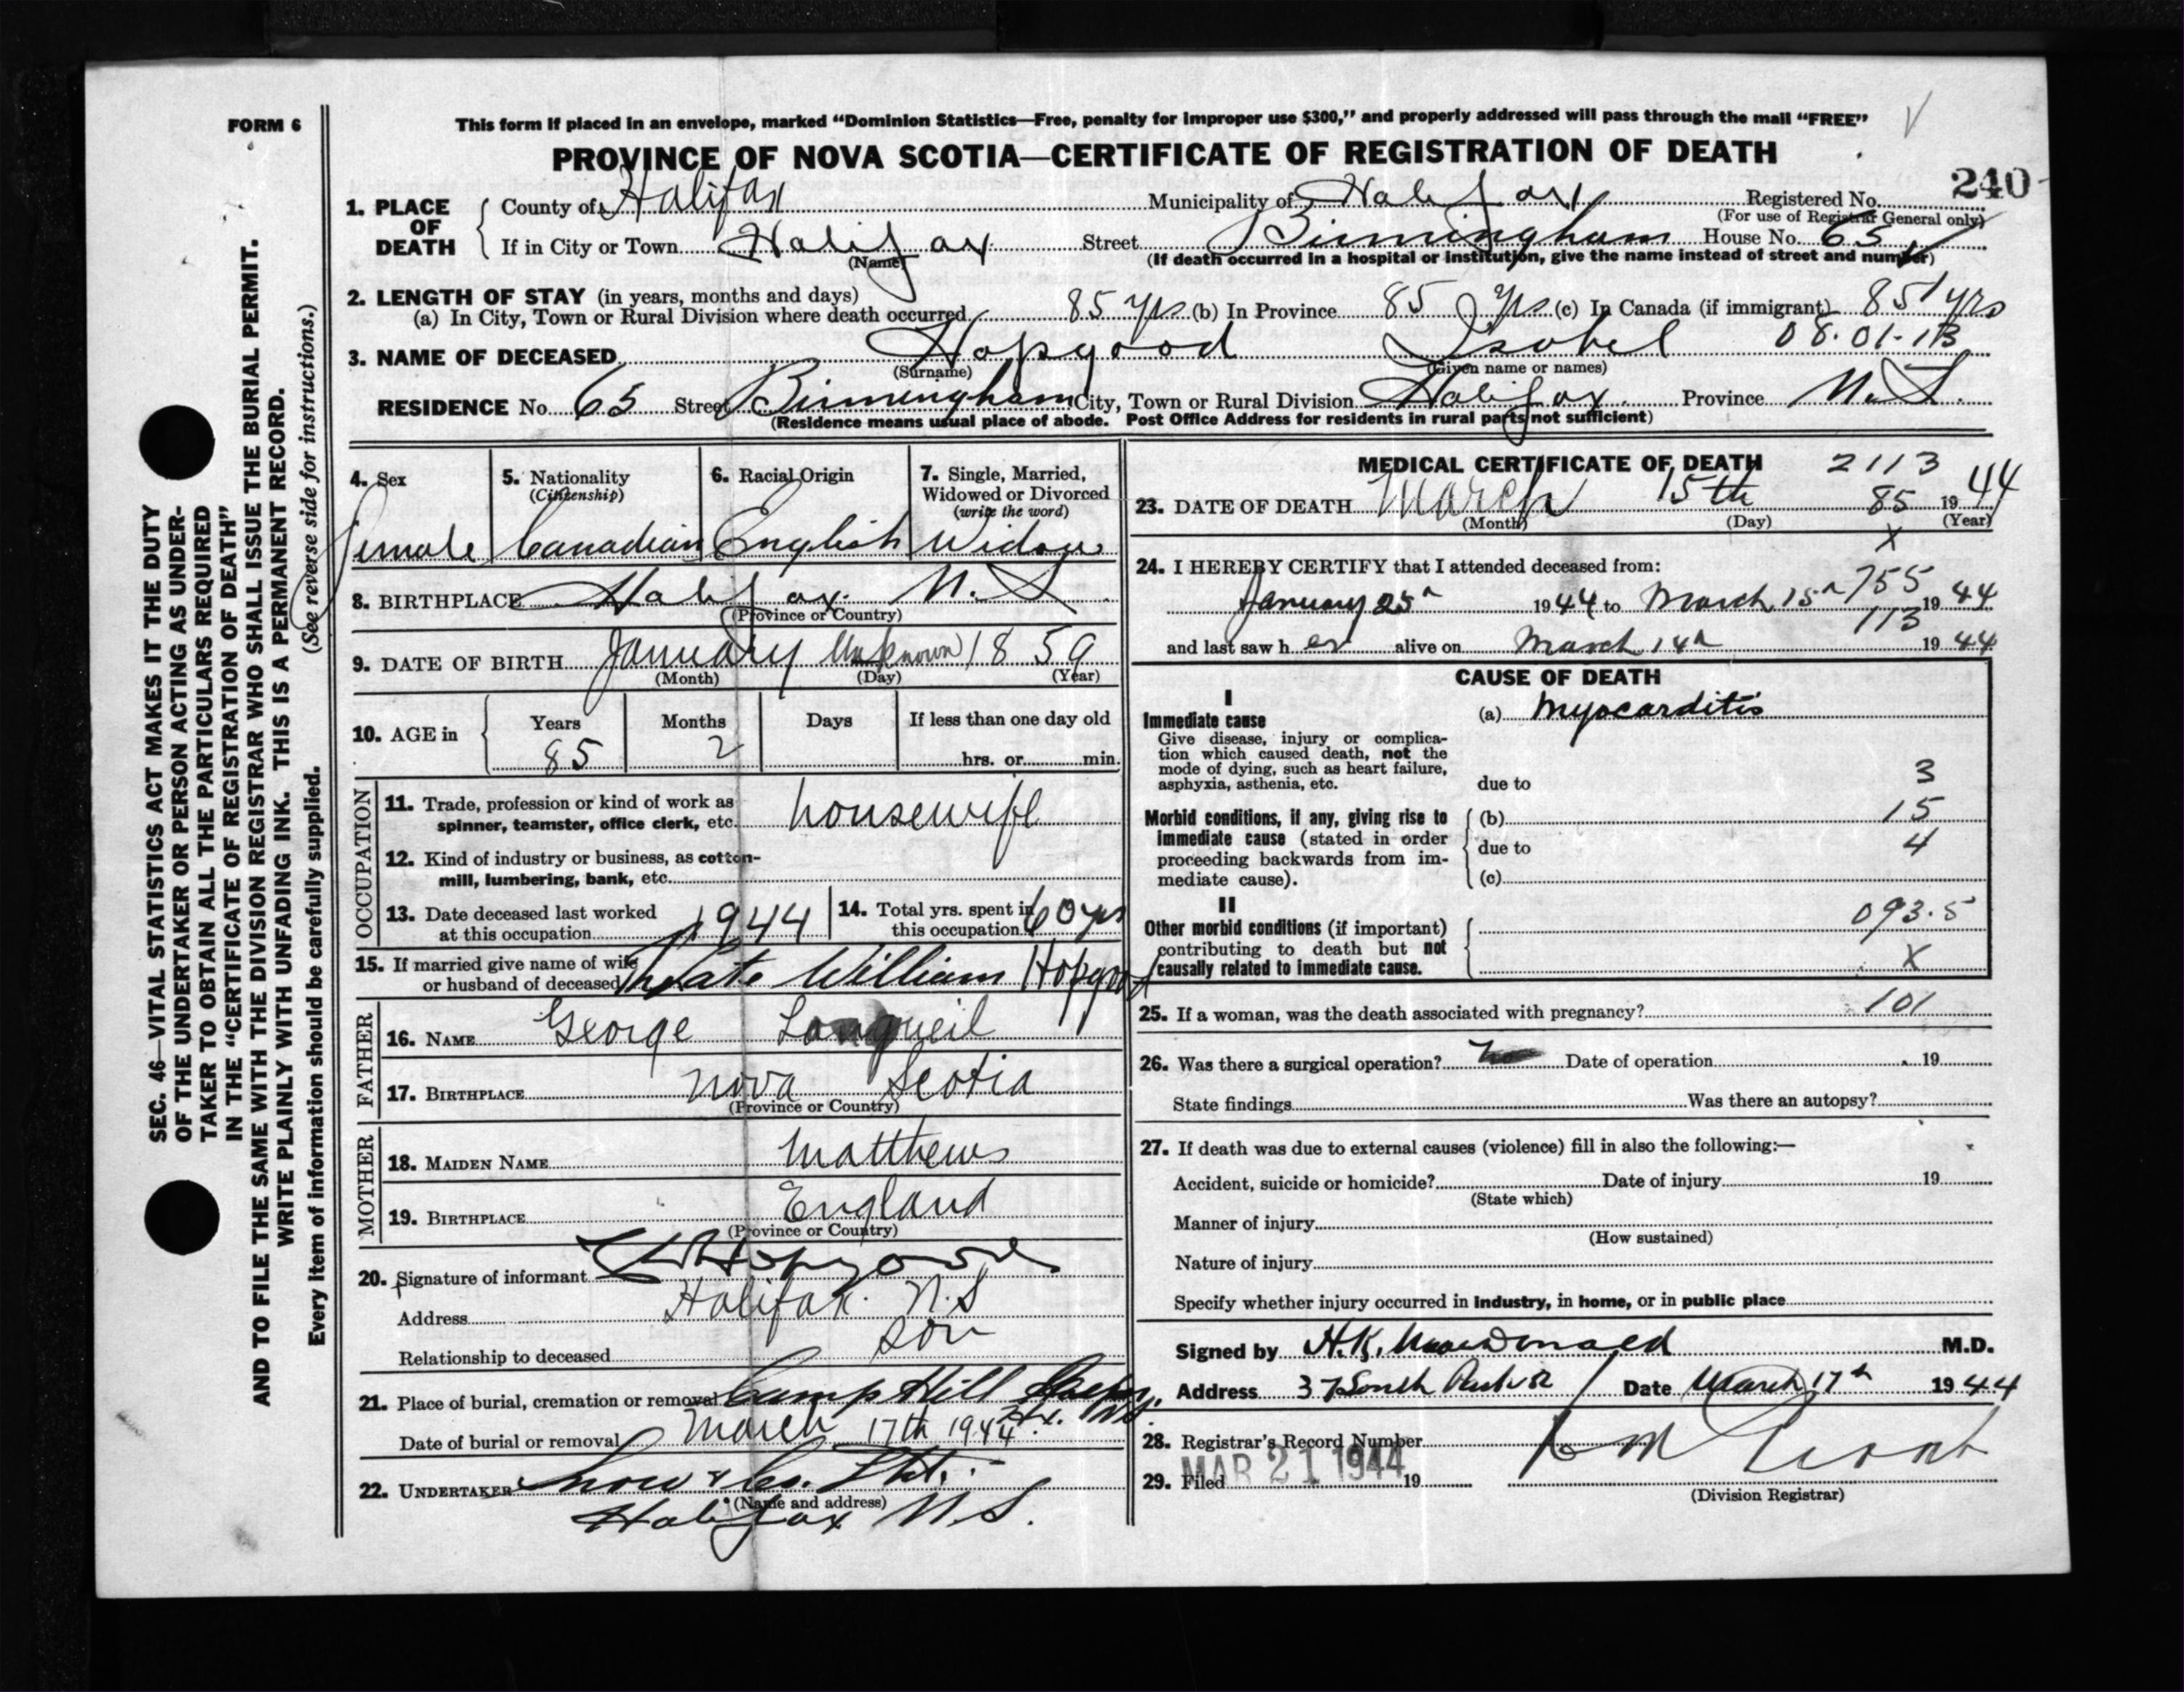 FORM 6
This form if placed in an envelope, marked “Dominion Statistics—Free, penalty for improper use $300,” and properly addressed will pass through the mail “FREE”
PROVINCE OF NOVA SCOTIA—CERTIFICATE OF REGISTRATION OF DEATH
240
1. PLACE OF DEATH
County of Halifax Municipality of Halifax Registered No.
(For use of Registrar General only)
If in City or Town Halifax Street Birmingham House No. 65
(Name) (If death occurred in a hospital or institution, give the name instead of street and number)
2. LENGTH OF STAY (in years, months and days)
(a) In City, Town or Rural Division where death occurred 85 yrs (b) In Province 85 yrs (c) In Canada (if immigrant) 85 yrs
08.01-113
3. NAME OF DECEASED Hopgood Isobel
(Surname) (Given name or names)
RESIDENCE No. 65 Street Birmingham City, Town or Rural Division Halifax Province N.S.
(Residence means usual place of abode. Post Office Address for residents in rural parts not sufficient)
4. Sex 5. Nationality (Citizenship) 6. Racial Origin 7. Single, Married, Widowed or Divorced (write the word)
female Canadian English Widow
8. BIRTHPLACE Halifax. N.S.
(Province or Country)
9. DATE OF BIRTH January Unknown 1859
(Month) (Day) (Year)
10. AGE in Years Months Days If less than one day old
85 2 hrs. or min.
OCCUPATION
11. Trade, profession or kind of work as
spinner, teamster, office clerk, etc. housewife
12. Kind of industry or business, as cotton-
mill, lumbering, bank, etc.
13. Date deceased last worked
at this occupation 1944
14. Total yrs. spent in
this occupation 60 yrs
15. If married give name of wife
or husband of deceased Late William Hopgood
FATHER
16. NAME George Longueil
17. BIRTHPLACE Nova Scotia
(Province or Country)
MOTHER
18. MAIDEN NAME Matthews
19. BIRTHPLACE England
(Province or Country)
20. Signature of informant Hopgood
Address Halifax. N.S
Relationship to deceased son
21. Place of burial, cremation or removal Camp Hill Hfx. N.S.
Date of burial or removal March 17th 1944
22. UNDERTAKER Snow & Co. Ltd.
(Name and address)
Halifax N.S.
MEDICAL CERTIFICATE OF DEATH 2113
23. DATE OF DEATH March 15th 85 1944
(Month) (Day) (Year)
X
24. I HEREBY CERTIFY that I attended deceased from:
755
January 25th 1944 to March 15th 1944
113
and last saw her alive on March 14th 1944
CAUSE OF DEATH
I
Immediate cause
(a) Myocarditis
Give disease, injury or complica-
tion which caused death, not the
mode of dying, such as heart failure,
asphyxia, asthenia, etc.
due to 3
Morbid conditions, if any, giving rise to
immediate cause (stated in order
proceeding backwards from im-
mediate cause).
(b) 15
due to 4
(c)
II
Other morbid conditions (if important)
contributing to death but not
causally related to immediate cause.
093.5
X
25. If a woman, was the death associated with pregnancy? 101
26. Was there a surgical operation? no Date of operation 19
State findings Was there an autopsy?
27. If death was due to external causes (violence) fill in also the following:—
Accident, suicide or homicide? Date of injury 19
(State which)
Manner of injury
(How sustained)
Nature of injury
Specify whether injury occurred in industry, in home, or in public place
Signed by H.K. MacDonald M.D.
Address 37 South Park St Date March 17th 1944
28. Registrar's Record Number
29. Filed MAR 21 1944 19
(Division Registrar)
SEC. 46—VITAL STATISTICS ACT MAKES IT THE DUTY
OF THE UNDERTAKER OR PERSON ACTING AS UNDER-
TAKER TO OBTAIN ALL THE PARTICULARS REQUIRED
IN THE “CERTIFICATE OF REGISTRATION OF DEATH”
AND TO FILE THE SAME WITH THE DIVISION REGISTRAR WHO SHALL ISSUE THE BURIAL PERMIT.
WRITE PLAINLY WITH UNFADING INK. THIS IS A PERMANENT RECORD.
Every item of information should be carefully supplied. (See reverse side for instructions.)